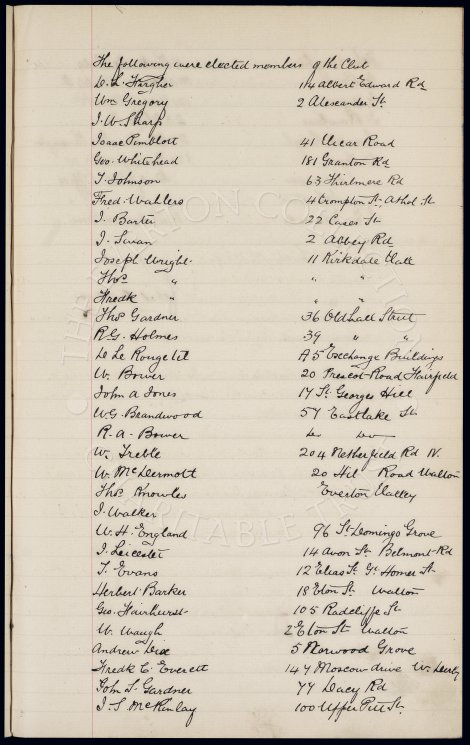 The following were elected members of the Club
D. L. Hargher 114 Albert Edward Rd
Wm Gregory 2 Alexander St
J. W. Sharp
Isaac Pimblott 41 Vicar Road
Geo. Whitehead 181 Granton Rd
T. Johnson 63 Thirlmere Rd
Fred. Walters 4 Crompton St. Athol St
J. Barter 22 Cases St
J. Swan 2 Abbey Rd
Joseph Wright 11 Kirkdale Vale
Thos " " "
Fredk " " "
Thos Gardner 36 Oldhall Street
R.G. Holmes 39 " "
De Le Rougetel A5 Exchange Buildings
W. Bower 20 Prescot Road Fairfield
John A Jones 17 St. Georges Hill
W.G. Brandwood 57 Eastlake St
R. A. Bower do do
W. Treble 204 Netherfield Rd N.
W. McDermott 20 Road Walton
Thos Knowles Everton Valley
J. Walker
W. H. England 96 St. Domingo Grove
J. Leicester 14 Avon St. Belmont Rd
T. Evans 12 Elias St. Gt Homer St
Herbert Barker 18 Eton St Walton
Geo. Fairhurst 105 Radcliffe St
W. Waugh 2 Eton St Walton
Andrew Dix 5 Norwood Grove
Fredk C. Everett 147 Moscow drive W. Derby
John S. Gardner 77 Dacy Rd
J. S. McKinlay 100 Upper Pitt St.